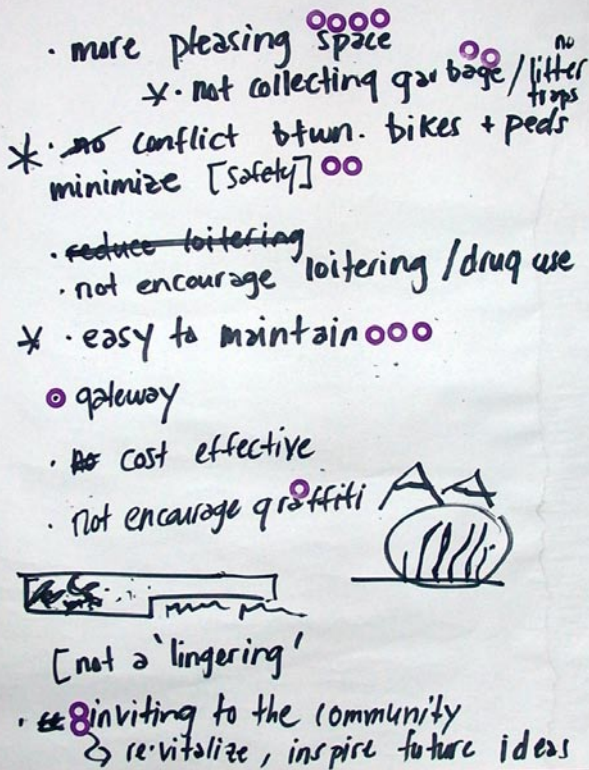 · more pleasing space
* · not collecting garbage / no litter traps
* · no conflict btwn. bikes + peds
minimize [safety]
· reduce loitering
· not encourage loitering / drug use
* · easy to maintain
gateway
· no cost effective
· not encourage graffiti
[not a 'lingering'
· inviting to the community
↳ re·vitalize, inspire future ideas